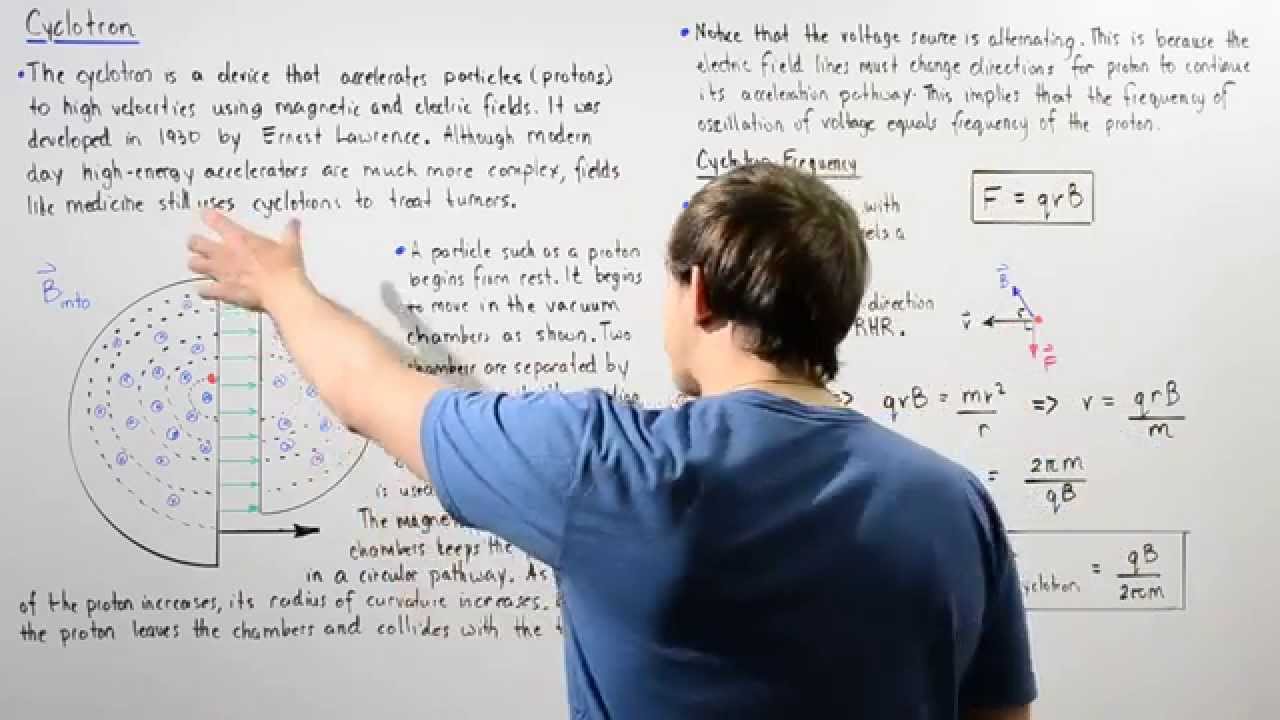 Cyclotron
• The cyclotron is a device that accelerates particles (protons)
to high velocities using magnetic and electric fields. It was
developed in 1930 by Ernest Lawrence. Although modern
day high-energy accelerators are much more complex, fields
like medicine still uses cyclotrons to treat tumors.
B into
• A particle such as a proton
begins from rest. It begins
to move in the vacuum
chambers as shown. Two
chambers are separated by
is used
The
chambers keeps the
in a circular pathway. As
of the proton increases, its radius of curvature increases.
the proton leaves the chambers and collides with the
• Notice that the voltage source is alternating. This is because the
electric field lines must change directions for proton to continue
its acceleration pathway. This implies that the frequency of
oscillation of voltage equals frequency of the proton.
Cyclotron Frequency
with
a
direction
RHR.
F = qvB
B
v
F
=> qvB = mv²/r => v = qrB/m
= 2πm/qB
cyclotron = qB/2πm